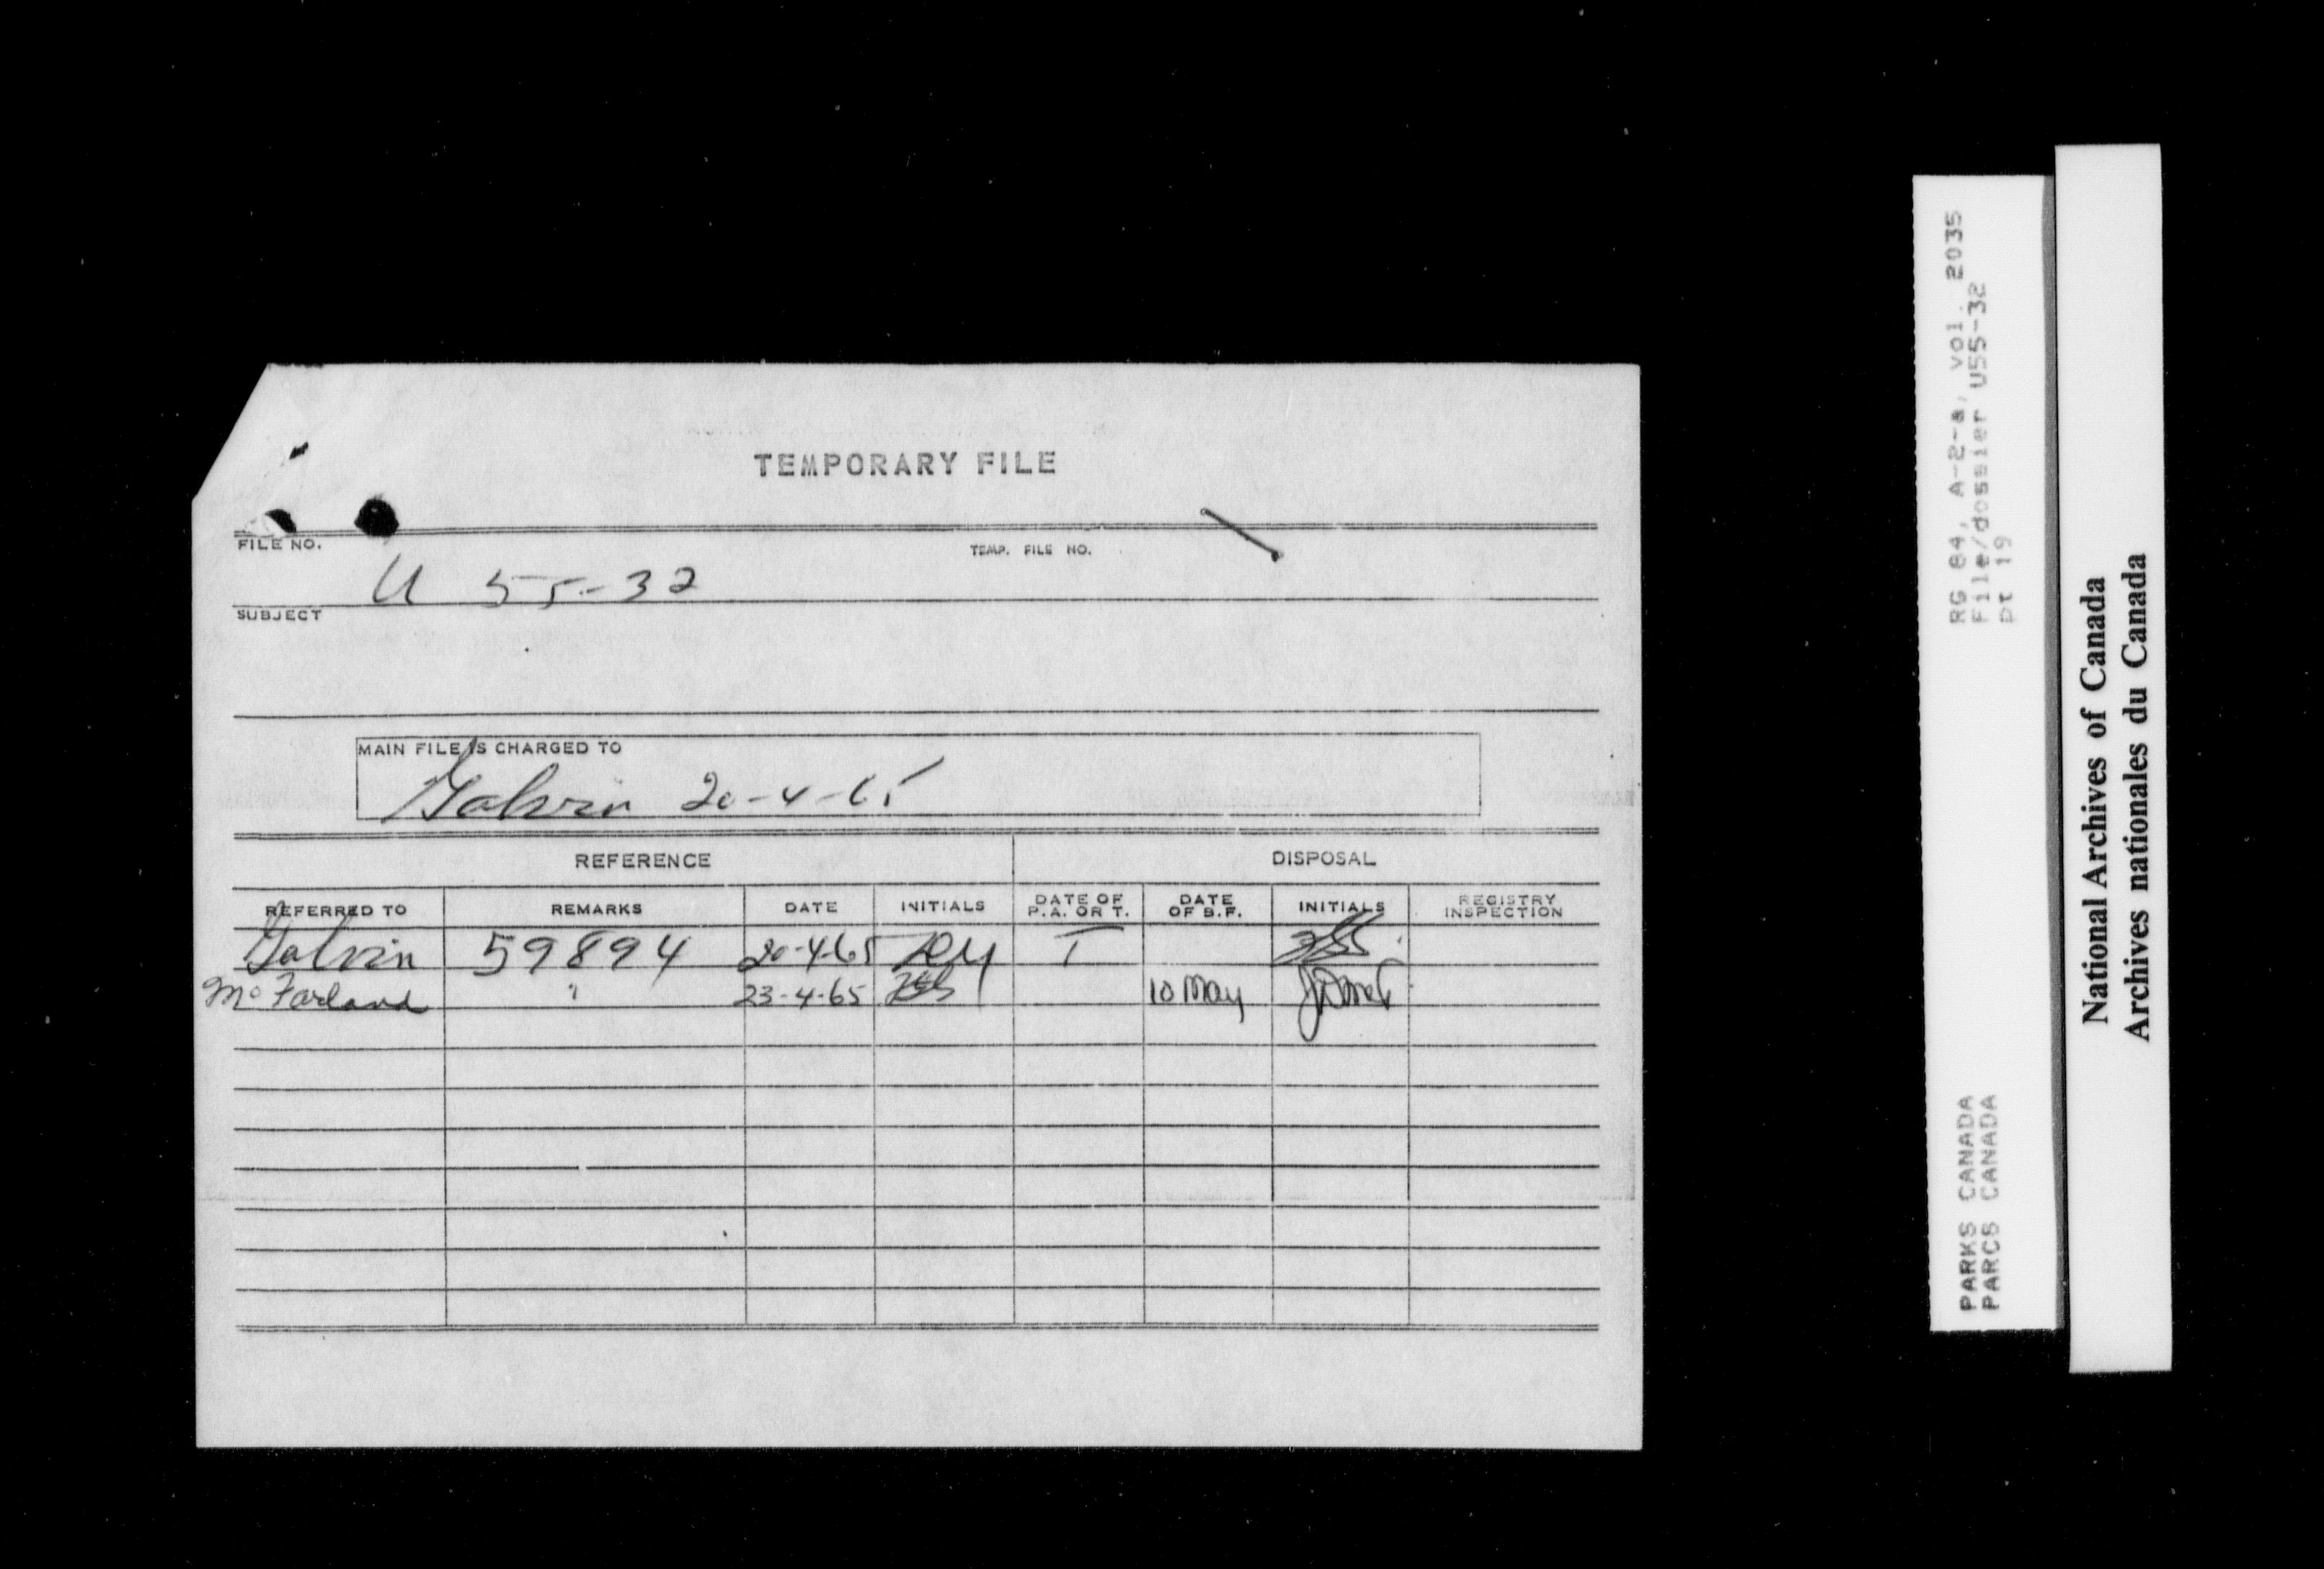 TEMPORARY FILE
FILE NO. TEMP. FILE NO.
U 55-32
SUBJECT
MAIN FILE IS CHARGED TO
Galvin 20-4-65
REFERENCE DISPOSAL
REFERRED TO REMARKS DATE INITIALS DATE OF P.A. OR T. DATE OF B.F. INITIALS REGISTRY INSPECTION
Galvin 59894 20-4-65 T
McFarland " 23-4-65 10 May
RG 84, A-2-a, vol. 2035
File/dossier U55-32
pt 19
PARKS CANADA
PARCS CANADA
National Archives of Canada
Archives nationales du Canada